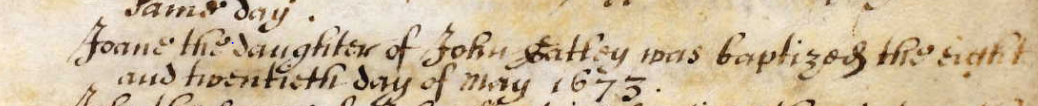 same day.
Joane the daughter of John Satley was baptized the eight
and twentieth day of may 1673.